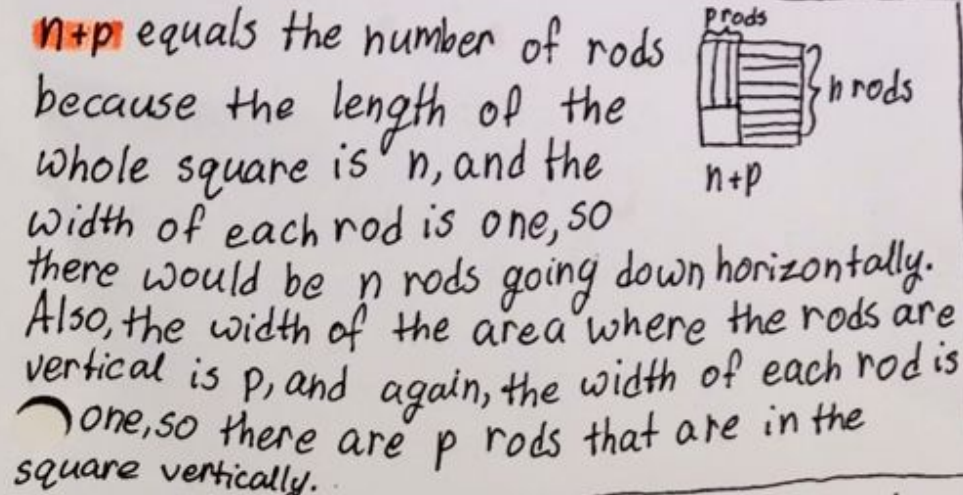 n+p equals the number of rods
because the length of the
whole square is n, and the
width of each rod is one, so
there would be n rods going down horizontally.
Also, the width of the area where the rods are
vertical is p, and again, the width of each rod is
one, so there are p rods that are in the
square vertically.
p rods
n rods
n+p